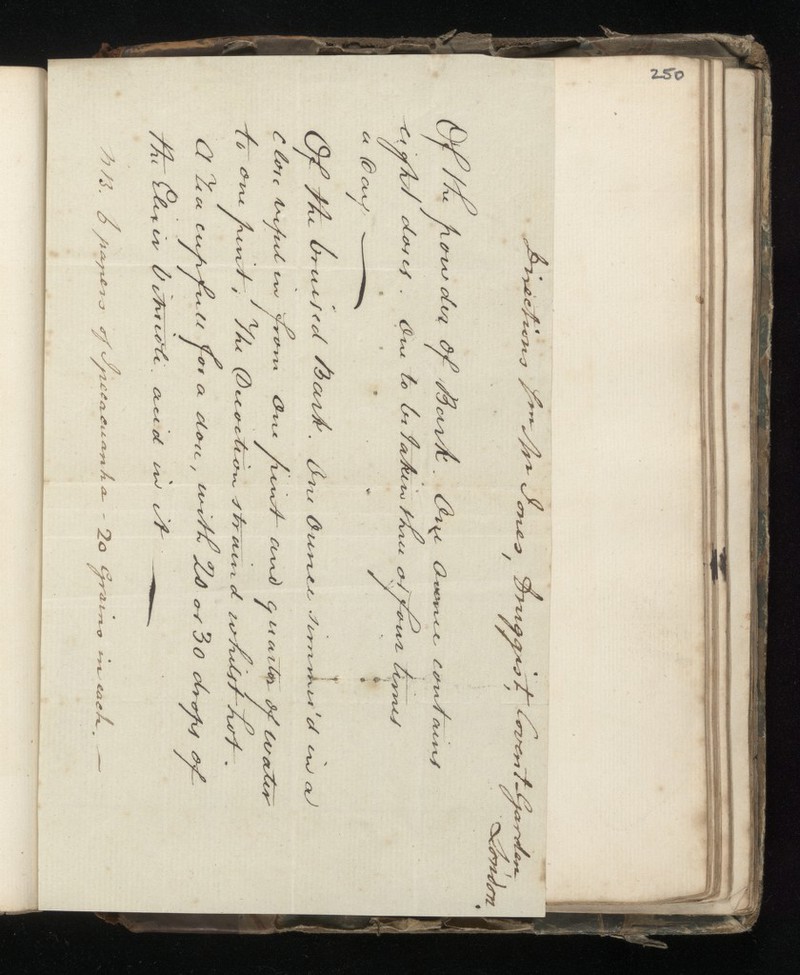 250
Directions fm Mr Jones, Druggist, Covent-Garden
London.
Of the powder of Bark. One Ounce contains
eight doses. One to be taken three or four times
a day
Of the bruised Bark. One Ounce simmer'd in a
close vessel in from one pint and quarter of water
to one pint; The Decoction strain'd whilst hot.
A Tea cupfull for a dose, with 20 or 30 drops of
the Elixir Vitriole acid in it
NB. 6 papers of Ipecacuanha - 20 Grains in each. —